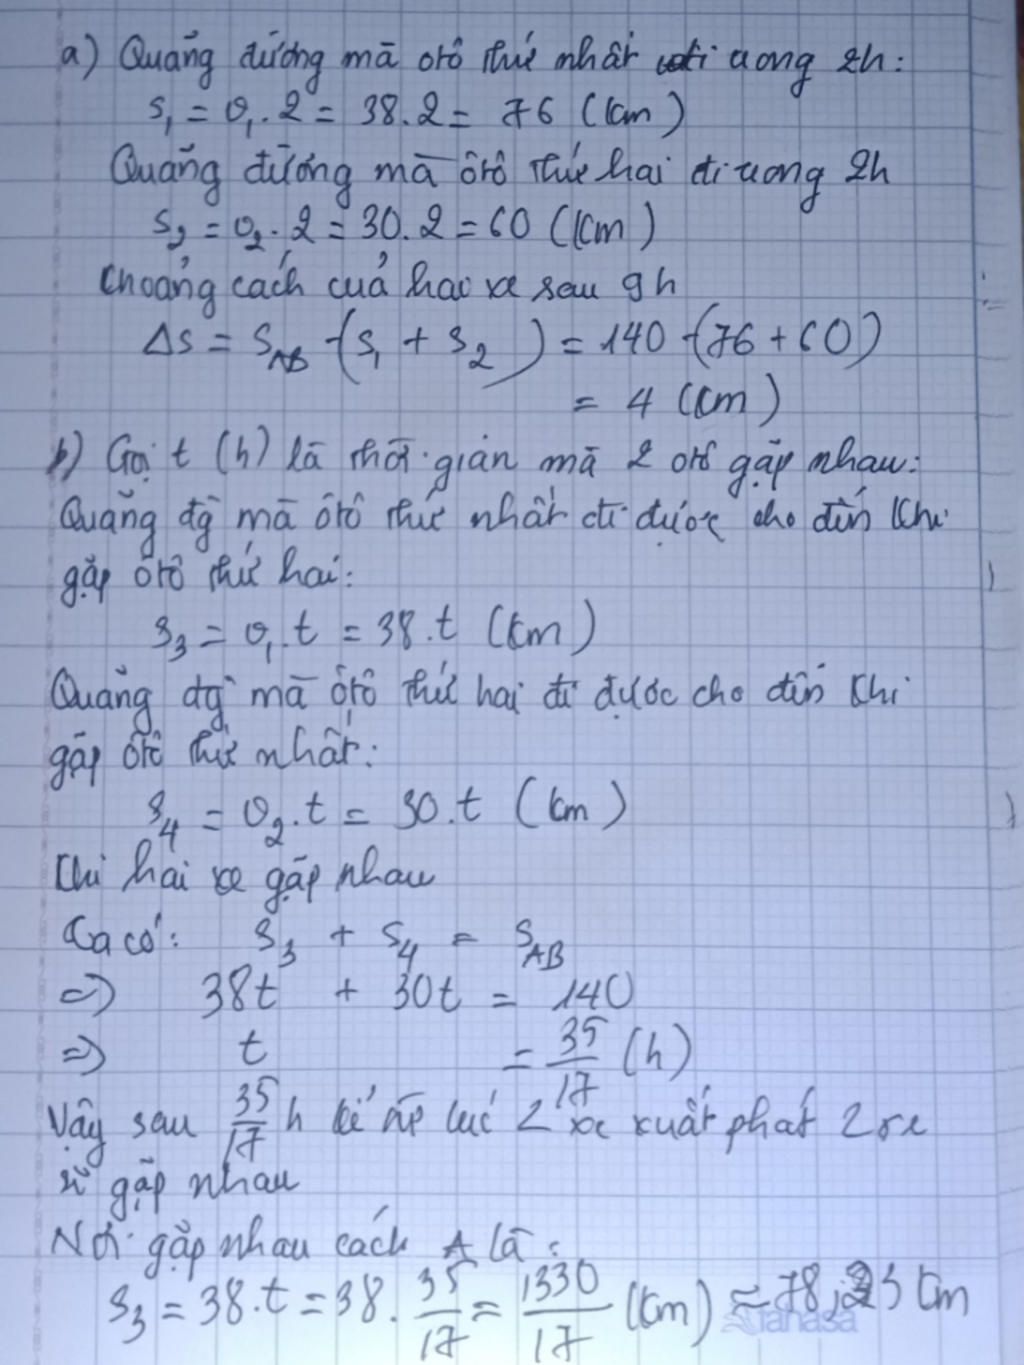 a) Quãng đường mà ôtô thứ nhất đi trong 2h:
S₁ = v₁.2 = 38.2 = 76 (km)
Quãng đường mà ôtô thứ hai đi trong 2h
S₂ = v₂.2 = 30.2 = 60 (km)
Khoảng cách của hai xe sau 2h
Δs = S_AB - (S₁ + S₂) = 140 - (76 + 60)
= 4 (km)
b) Gọi t (h) là thời gian mà 2 ôtô gặp nhau:
Quãng đg mà ôtô thứ nhất đi được cho đến khi
gặp ôtô thứ hai:
S₃ = v₁.t = 38.t (km)
Quãng đg mà ôtô thứ hai đi được cho đến khi
gặp ôtô thứ nhất:
S₄ = v₂.t = 30.t (km)
Khi hai xe gặp nhau
Ta có: S₃ + S₄ = S_AB
=> 38t + 30t = 140
=> t = 35/17 (h)
Vậy sau 35/17 h kể từ lúc 2 xe xuất phát 2 xe
sẽ gặp nhau
Nơi gặp nhau cách A là:
S₃ = 38.t = 38. 35/17 = 1330/17 (km) ≈ 78,23 km